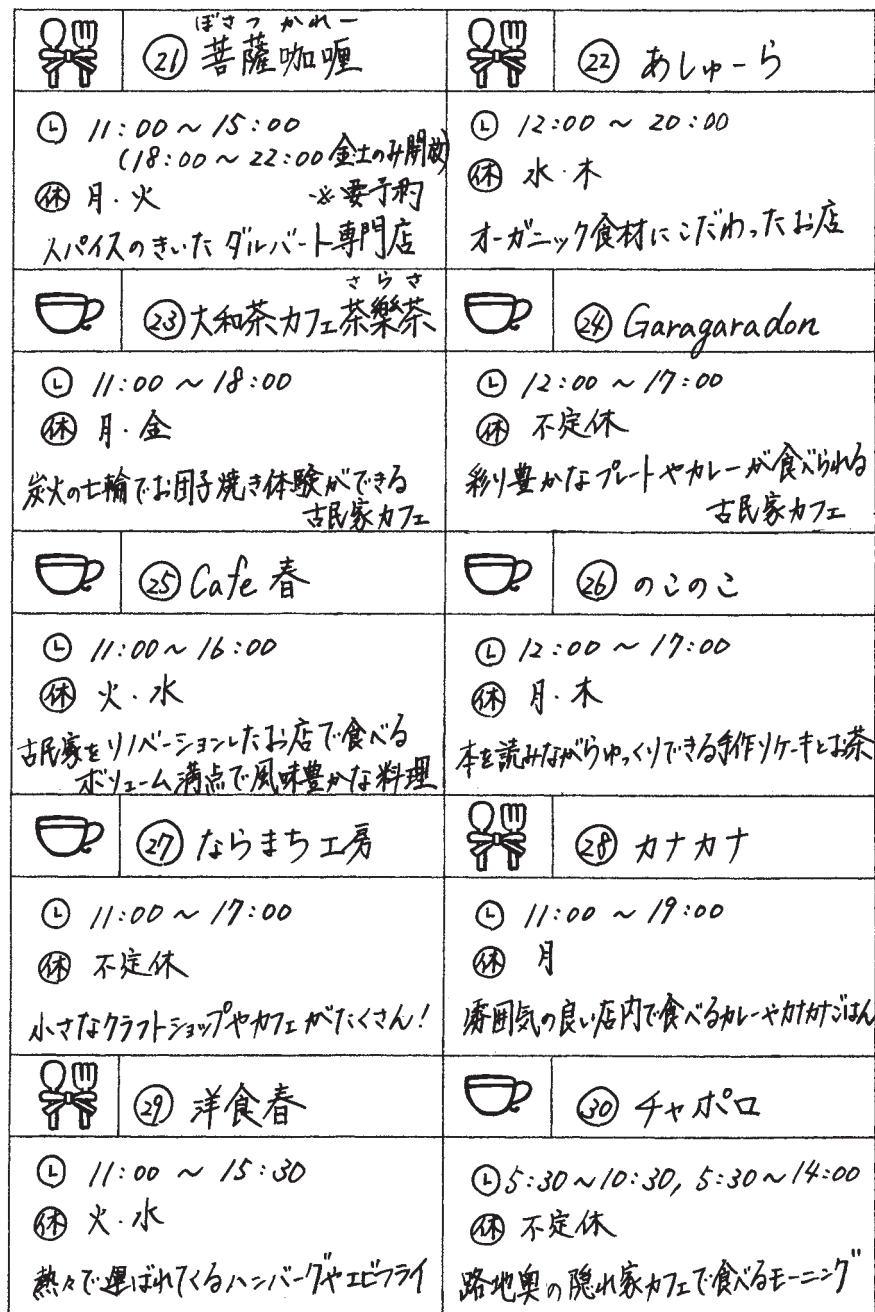 ぼさつ かれー
㉑ 菩薩咖喱
11:00 ~ 15:00
(18:00 ~ 22:00 金土のみ開放)
休 月・火 ※要予約
スパイスのきいた ダルバート専門店
㉒ あしゅーら
12:00 ~ 20:00
休 水・木
オーガニック食材にこだわったお店
さらさ
㉓ 大和茶カフェ茶樂茶
11:00 ~ 18:00
休 月・金
炭火の七輪でお団子焼き体験ができる
古民家カフェ
㉔ Garagaradon
12:00 ~ 17:00
休 不定休
彩り豊かなプレートやカレーが食べられる
古民家カフェ
㉕ Cafe 春
11:00 ~ 16:00
休 火・水
古民家をリノベーションしたお店で食べる
ボリューム満点で風味豊かな料理
㉖ のこのこ
12:00 ~ 17:00
休 月・木
本を読みながらゆっくりできる手作りケーキとお茶
㉗ ならまち工房
11:00 ~ 17:00
休 不定休
小さなクラフトショップやカフェがたくさん!
㉘ カナカナ
11:00 ~ 19:00
休 月
雰囲気の良い店内で食べるカレーやカナカナごはん
㉙ 洋食春
11:00 ~ 15:30
休 火・水
熱々で運ばれてくるハンバーグやエビフライ
㉚ チャポロ
5:30~10:30, 5:30~14:00
休 不定休
路地奥の隠れ家カフェで食べるモーニング